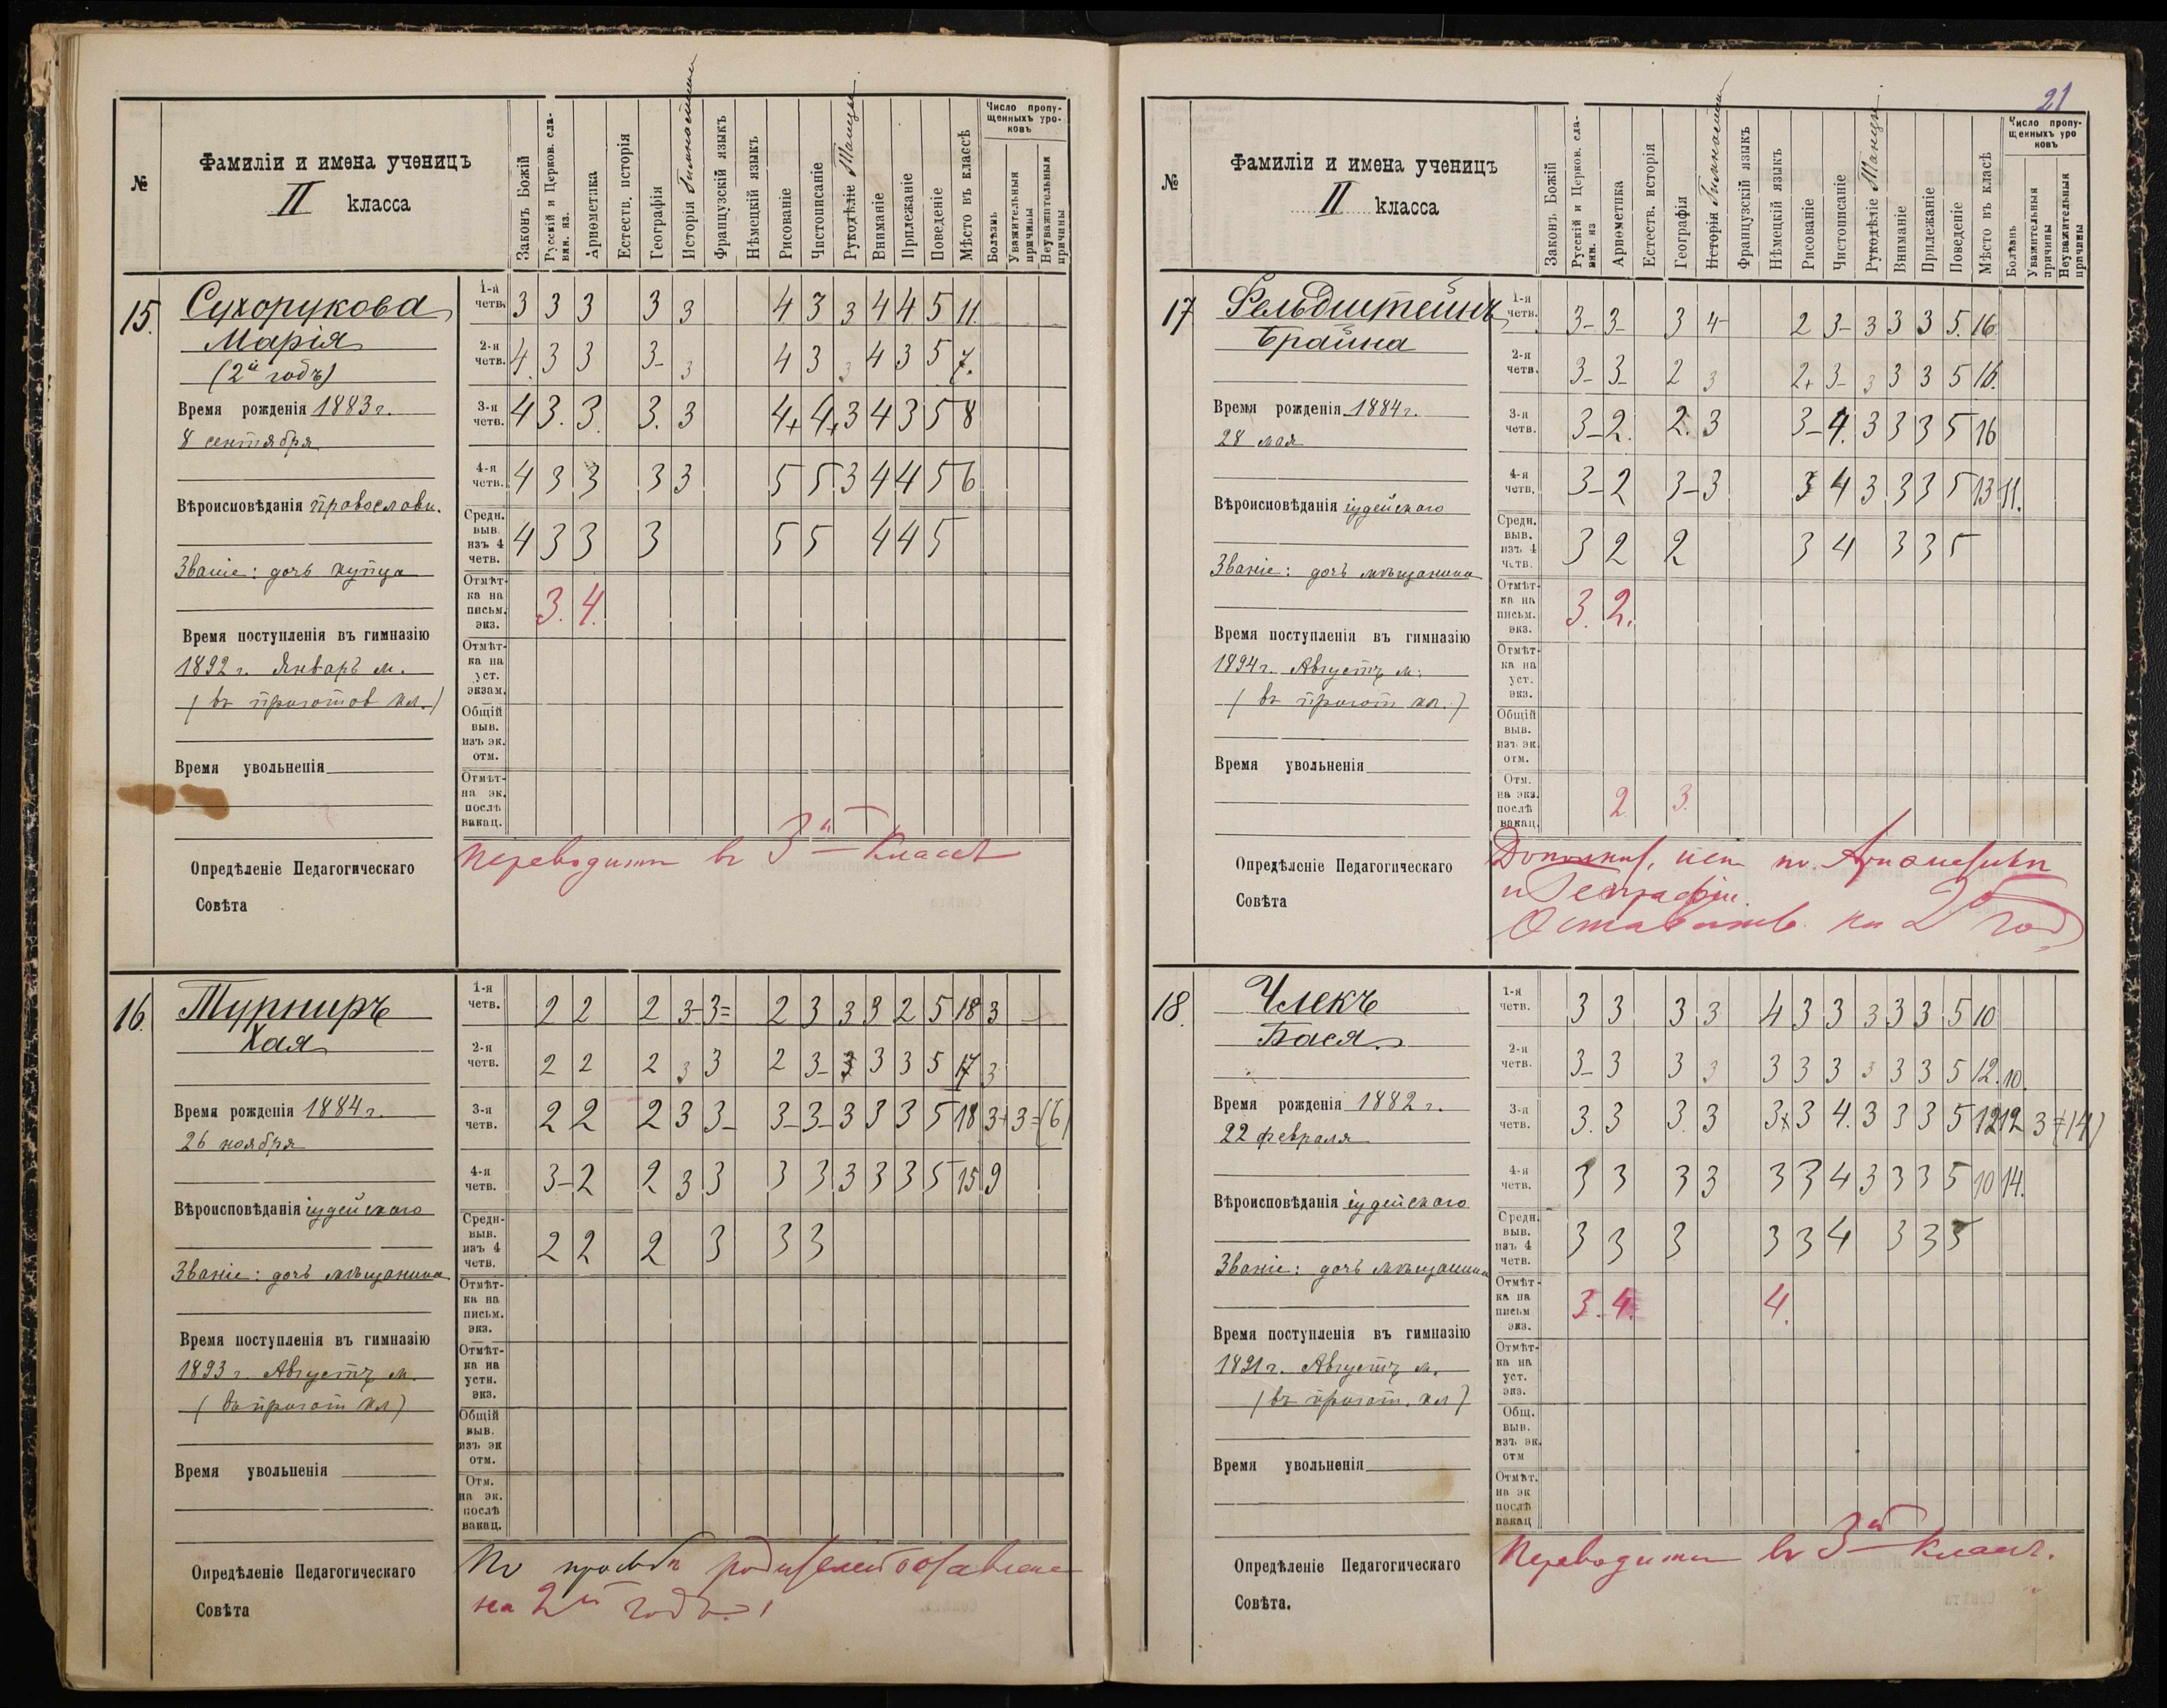 21
№
Фамиліи и имена ученицъ
II класса
Законъ Божій
Русскій и Церков. сла-
вян. яз.
Ариѳметика
Естеств. исторія
Географія
Исторія Гимнастика
Французскій языкъ
Нѣмецкій языкъ
Рисованіе
Чистописаніе
Рукодѣліе Танцы
Вниманіе
Прилежаніе
Поведеніе
Мѣсто въ классѣ
Число пропу-
щенныхъ уро-
ковъ
Болѣзнь
Уважительныя
причины
Неуважительныя
причины
15.
Сухорукова
Марія
(2й годъ)
Время рожденія 1883 г.
8 сентября
Вѣроисповѣданія православн.
Званіе: дочь купца
Время поступленія въ гимназію
1892 г. Январь м.
(въ приготов кл.)
Время увольненія
Опредѣленіе Педагогическаго
Совѣта
1-я четв. 3 3 3 3 3 4 3 3 4 4 5 11.
2-я четв. 4. 3 3 3- 3 4 3 3 4 3 5 7.
3-я четв. 4 3. 3. 3. 3 4+ 4+ 3 4 3 5 8
4-я четв. 4 3 3 3 3 5 5 3 4 4 5 6
Средн. выв. изъ 4 четв. 4 3 3 3 5 5 4 4 5
Отмѣт-ка на письм. экз. 3. 4.
Отмѣт-ка на уст. экзам.
Общій выв. изъ эк. отм.
Отмѣт-на эк. послѣ вакац.
Переводится въ 3й классъ
16.
Турниръ
Хая
Время рожденія 1884 г.
26 ноября
Вѣроисповѣданія іудейскаго
Званіе: дочь мѣщанина
Время поступленія въ гимназію
1893 г. Августъ м.
(въ пригот кл)
Время увольненія
Опредѣленіе Педагогическаго
Совѣта
1-я четв. 2 2 2 3- 3= 2 3 3 3 2 5 18 3
2-я четв. 2 2 2 3 3 2 3- 3 3 3 5 17 3
3-я четв. 2 2 2 3 3- 3- 3- 3 3 3 5 18 3+3=(6)
4-я четв. 3- 2 2 3 3 3 3 3 3 3 5 15 9
Средн- выв. изъ 4 четв. 2 2 2 3 3 3
Отмѣт-ка на письм. экз.
Отмѣт-ка на устн. экз.
Общій выв. изъ эк отм.
Отм. на эк. послѣ вакац.
По просьбѣ родителей оставлена
на 2й годъ.
№
Фамиліи и имена ученицъ
II класса
Законъ Божій
Русскій и Церков. сла-
вян. яз
Ариѳметика
Естеств. исторія
Географія
Исторія Гимнастика
Французскій языкъ
Нѣмецкій языкъ
Рисованіе
Чистописаніе
Рукодѣліе Танцы
Вниманіе
Прилежаніе
Поведеніе
Мѣсто въ класѣ
Число пропу-
щенныхъ уро
ковъ
Болѣзнь
Уважительныя
причины
Неуважительныя
причины
17
Фельдштейнъ
Брайна
Время рожденія 1884 г.
28 мая
Вѣроисповѣданія іудейскаго
Званіе: дочь мѣщанина
Время поступленія въ гимназію
1894 г. Августъ м.
(въ пригот кл.)
Время увольненія
Опредѣленіе Педагогическаго
Совѣта
1-я четв. 3- 3- 3 4- 2 3- 3 3 3 5. 16.
2-я четв. 3- 3- 2 3 2+ 3- 3 3 3 5 16.
3-я четв. 3- 2. 2. 3 3- 4. 3 3 3 5 16
4-я четв. 3- 2 3- 3 3 4 3 3 3 5 13 11.
Средн. выв. изъ 4 четв. 3 2 2 3 4 3 3 5
Отмѣт-ка на письм. экз. 3. 2.
Отмѣт-ка на уст. экз.
Общій выв. изъ эк. отм.
Отм. на экз. послѣ вакац. 2. 3.
по Ариѳметикѣ
и Географіи.
Оставить на 2й год
18.
Члекъ
Бася
Время рожденія 1882 г.
22 февраля
Вѣроисповѣданія іудейскаго
Званіе: дочь мѣщанина
Время поступленія въ гимназію
1891 г. Августъ м.
(въ пригот. кл)
Время увольненія
Опредѣленіе Педагогическаго
Совѣта.
1-я четв. 3 3 3 3 4 3 3 3 3 3 5 10
2-я четв. 3- 3 3 3 3 3 3 3 3 3 5 12. 10.
3-я четв. 3. 3 3. 3 3+ 3 4. 3 3 3 5 12 12 3
4-я четв. 3 3 3 3 3 3 4 3 3 3 5 10 14.
Средн. выв. изъ 4 четв. 3 3 3 3 3 4 3 3 5
Отмѣт-ка на письм экз. 3. 4. 4.
Отмѣт-ка на уст. экз.
Общ. выв. изъ эк. отм
Отмѣт. на эк послѣ вакац
Переводится въ 3й классъ.